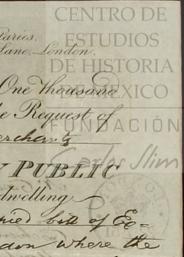 CENTRO DE
ESTUDIOS
DE HISTORIA
DE MÉXICO
FUNDACIÓN
Carlos Slim
taries.
Lane, London.
One thousand
Request of
Merchants
PUBLIC
dwelling
bill of Ex-
where the